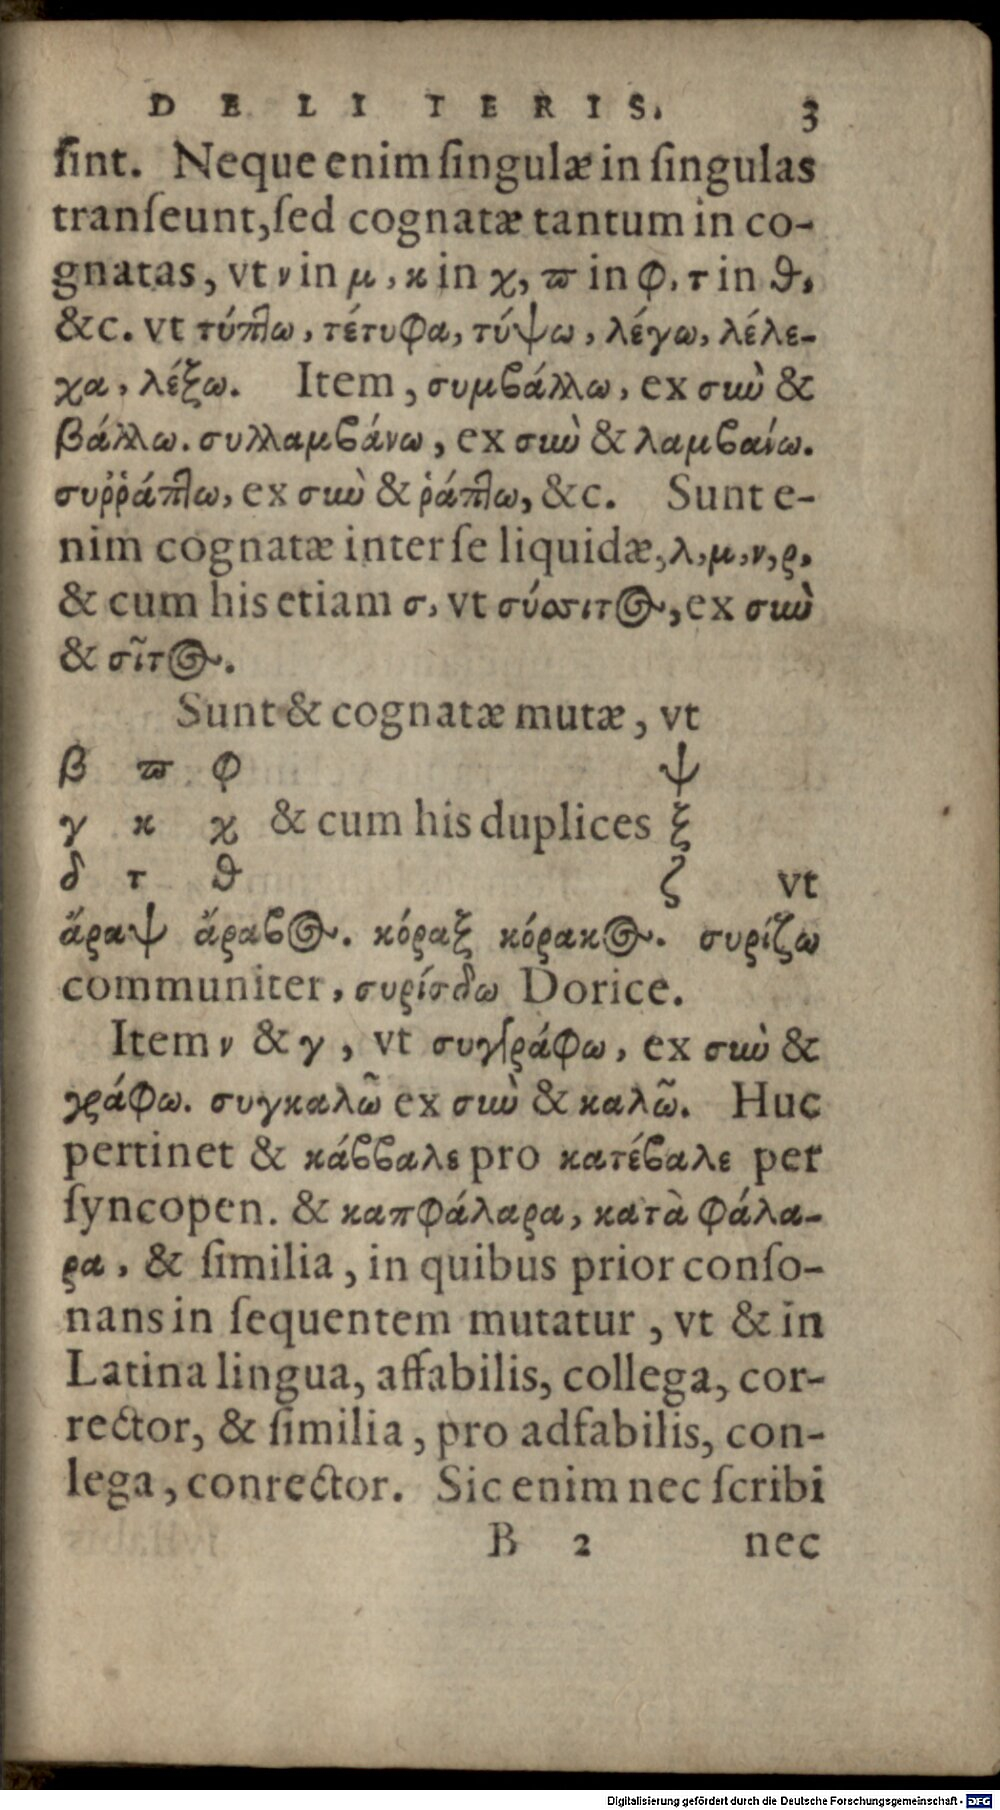 DE LITERIS. 3
ſint. Neque enim ſingulæ in ſingulas
tranſeunt, ſed cognatæ tantum in co-
gnatas, vt ν in μ, κ in χ, ϖ in φ, τ in ϑ,
&c. vt τύπτω, τέτυφα, τύψω, λέγω, λέλε-
χα, λέξω. Item, συμϐάλλω, ex σιὼ &
βάλλω. συλλαμϐάνω, ex σιὼ & λαμϐαίνω.
συῤῥάπτω, ex σιὼ & ῥάπτω, &c. Sunt e-
nim cognatæ inter ſe liquidæ, λ, μ, ν, ρ,
& cum his etiam σ, vt σύσσιτος, ex σιὼ
& σῖτος.
Sunt & cognatæ mutæ, vt
β ϖ φ ψ
γ κ χ & cum his duplices ξ
δ τ ϑ ζ vt
ἄραψ ἄραϐος. κόραξ κόρακος. συρίζω
communiter, συρίσδω Dorice.
Item ν & γ, vt συγγράφω, ex σιὼ &
γράφω. συγκαλῶ ex σιὼ & καλῶ. Huc
pertinet & κάϐϐαλε pro κατέϐαλε per
ſyncopen. & καπφάλαρα, κατὰ φάλα-
ρα, & ſimilia, in quibus prior conſo-
nans in ſequentem mutatur, vt & in
Latina lingua, affabilis, collega, cor-
rector, & ſimilia, pro adfabilis, con-
lega, conrector. Sic enim nec ſcribi
B 2 nec
Digitalisierung gefördert durch die Deutsche Forschungsgemeinschaft - DFG